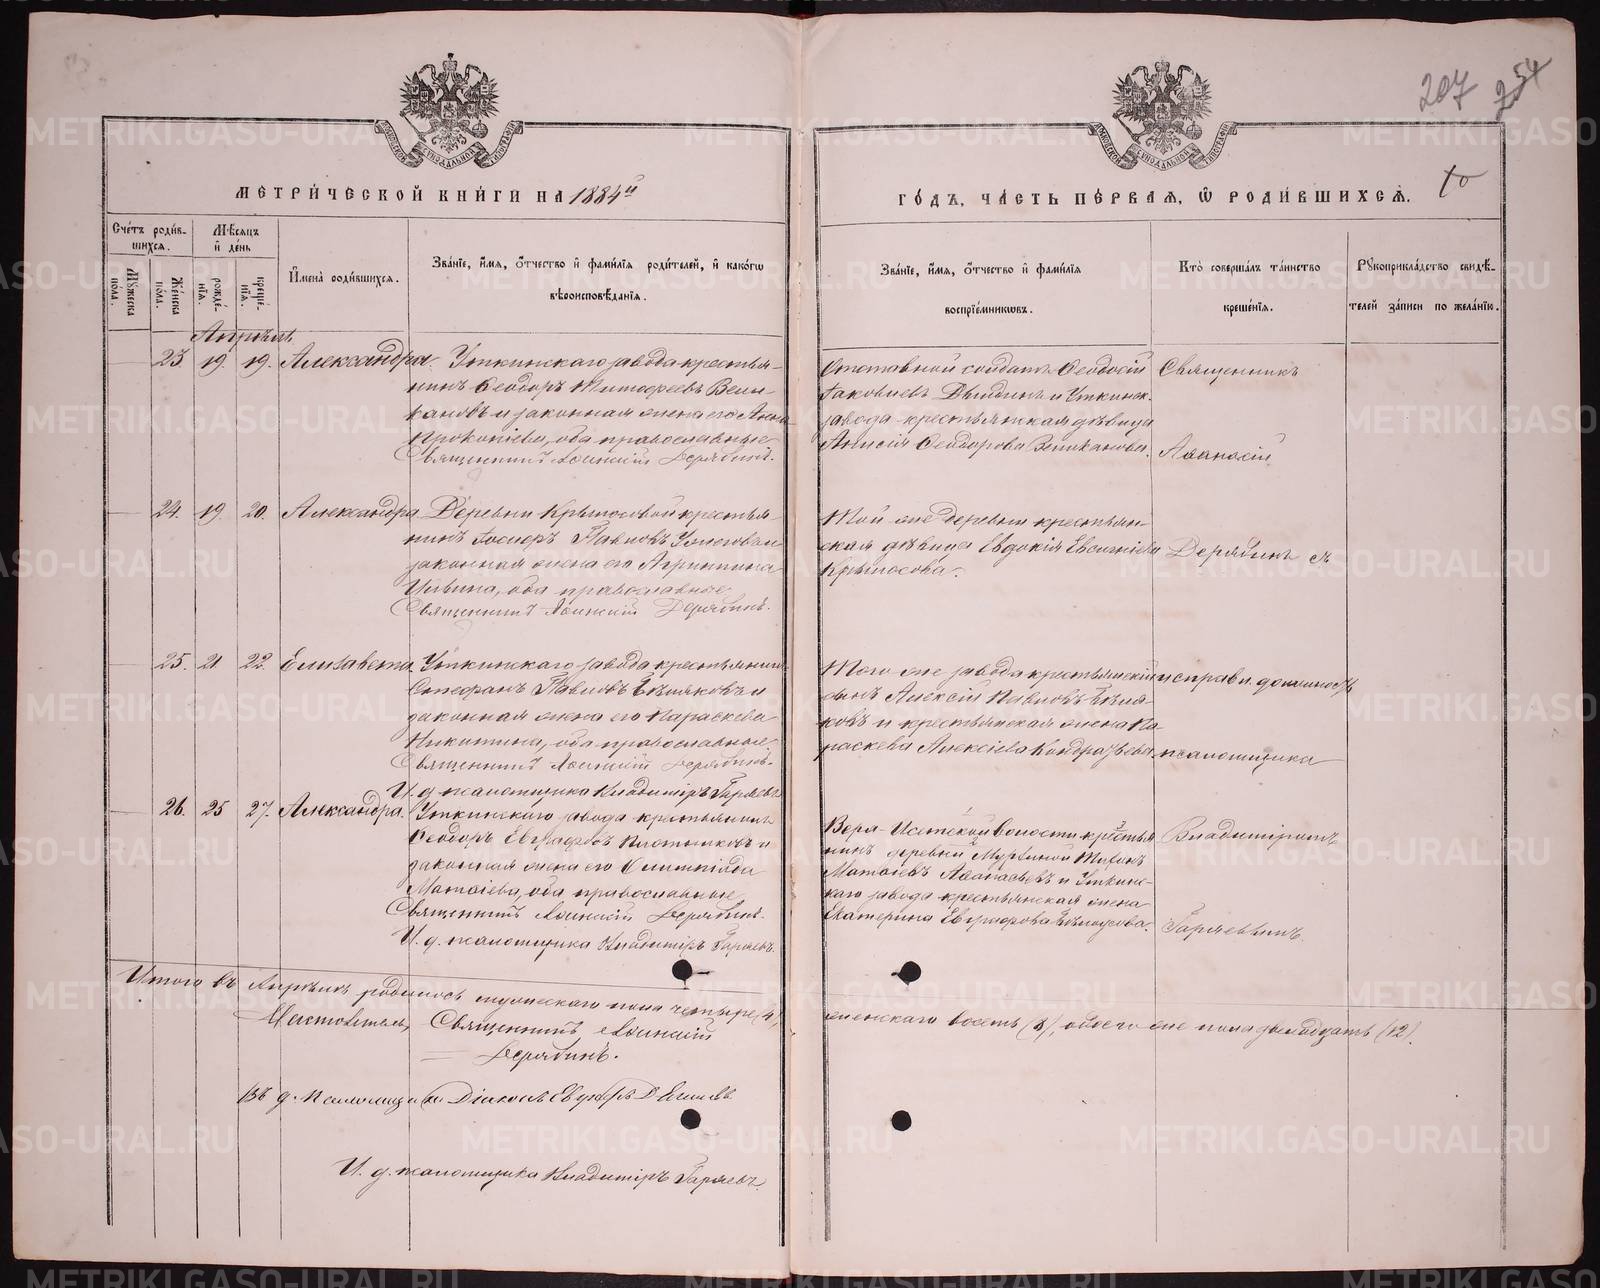 207
254
МЕТРИ́ЧЕСКОЙ КНИ́ГИ НА 1884й
ГО́ДЪ, ЧА́СТЬ ПЕ́РВАЯ, Ѽ РОДИ́ВШИХСѦ.
Сче́тъ роди́в-
шихся.
Мѣ́сяцъ
и҆ де́нь
Мꙋ́жеска по́ла.
Же́нска по́ла.
рожде́-
нїя.
креще́-
нїя.
И҆мена̀ роди́вшихся.
Зва́нїе, и҆́мя, ѻ҆́тчество и҆ фами́лїя роди́телей, и҆ како́гѡ
вѣроисповѣ́данїя.
Зва́нїе, и҆́мя, ѻ҆́тчество и҆ фами́лїя
воспрїе́мникѡвъ.
Кто̀ соверша́лъ та́инство
креще́нїя.
Рꙋкоприкла́дство свидѣ́-
телей за́писи по жела́нїю.
Апрѣль
23 19. 19. Александра. Уткинскаго завода крестья-
нинъ Ѳеодоръ Тимоѳеевъ Вели-
кановъ и законная жена его Анна
Прокопіева, оба православные
Священникъ Аѳанасій Дерябинъ.
Отставной солдатъ Ѳеодосій
Іаковлевъ и Уткинск.
завода крестьянская дѣвица
Анисія Ѳеодорова Великанова.
Священникъ
Аѳанасій
24. 19. 20. Александра Деревни Крылосовой крестья-
нинъ Павловъ
законная жена его Агриппина
Ильина, оба православные.
Священникъ Аѳанасій Дерябинъ.
Той же деревни крестьян-
ская дѣвица Евдокія Евсигніева
Крылосова.
Дерябинъ съ
25. 21 22. Елизавета Уткинскаго завода крестьянинъ
Стефанъ Павловъ Бѣляковъ и
законная жена его Параскева
Никитина, оба православные.
Священникъ Аѳанасій Дерябинъ.
И. д. псаломщика Владиміръ Гаряевъ
Того же завода крестьянскій
сынъ Алексій Павловъ Бѣля-
ковъ и крестьянская жена Па-
раскева Алексіева Кондратьева.
исправл. должность
псаломщика
26. 25 27. Александра. Уткинскаго завода крестьянинъ
Ѳеодоръ Евграфовъ Плотниковъ и
законная жена его Олимпіада
Матѳіева, оба православные
Священникъ Аѳанасій Дерябинъ.
И. д. псаломщика Владиміръ Гаряевъ.
Верх-Исетской волости крестья-
нинъ деревни Мурзиной Тихонъ
Матѳіевъ Аѳанасьевъ и Уткинс-
каго завода крестьянская жена
Екатерина Евграфова Бѣлоусова.
Владиміромъ
Гаряевымъ.
Итого въ Апрѣлѣ родилось мужескаго пола четыре (4),
женскаго восемь (8), обоего же пола двенадцать (12).
Настоятель, Священникъ Аѳанасій
Дерябинъ.
д. псаломщика Діаконъ
И. д. псаломщика Владиміръ Гаряевъ.
METRIKI.GASO-URAL.RU